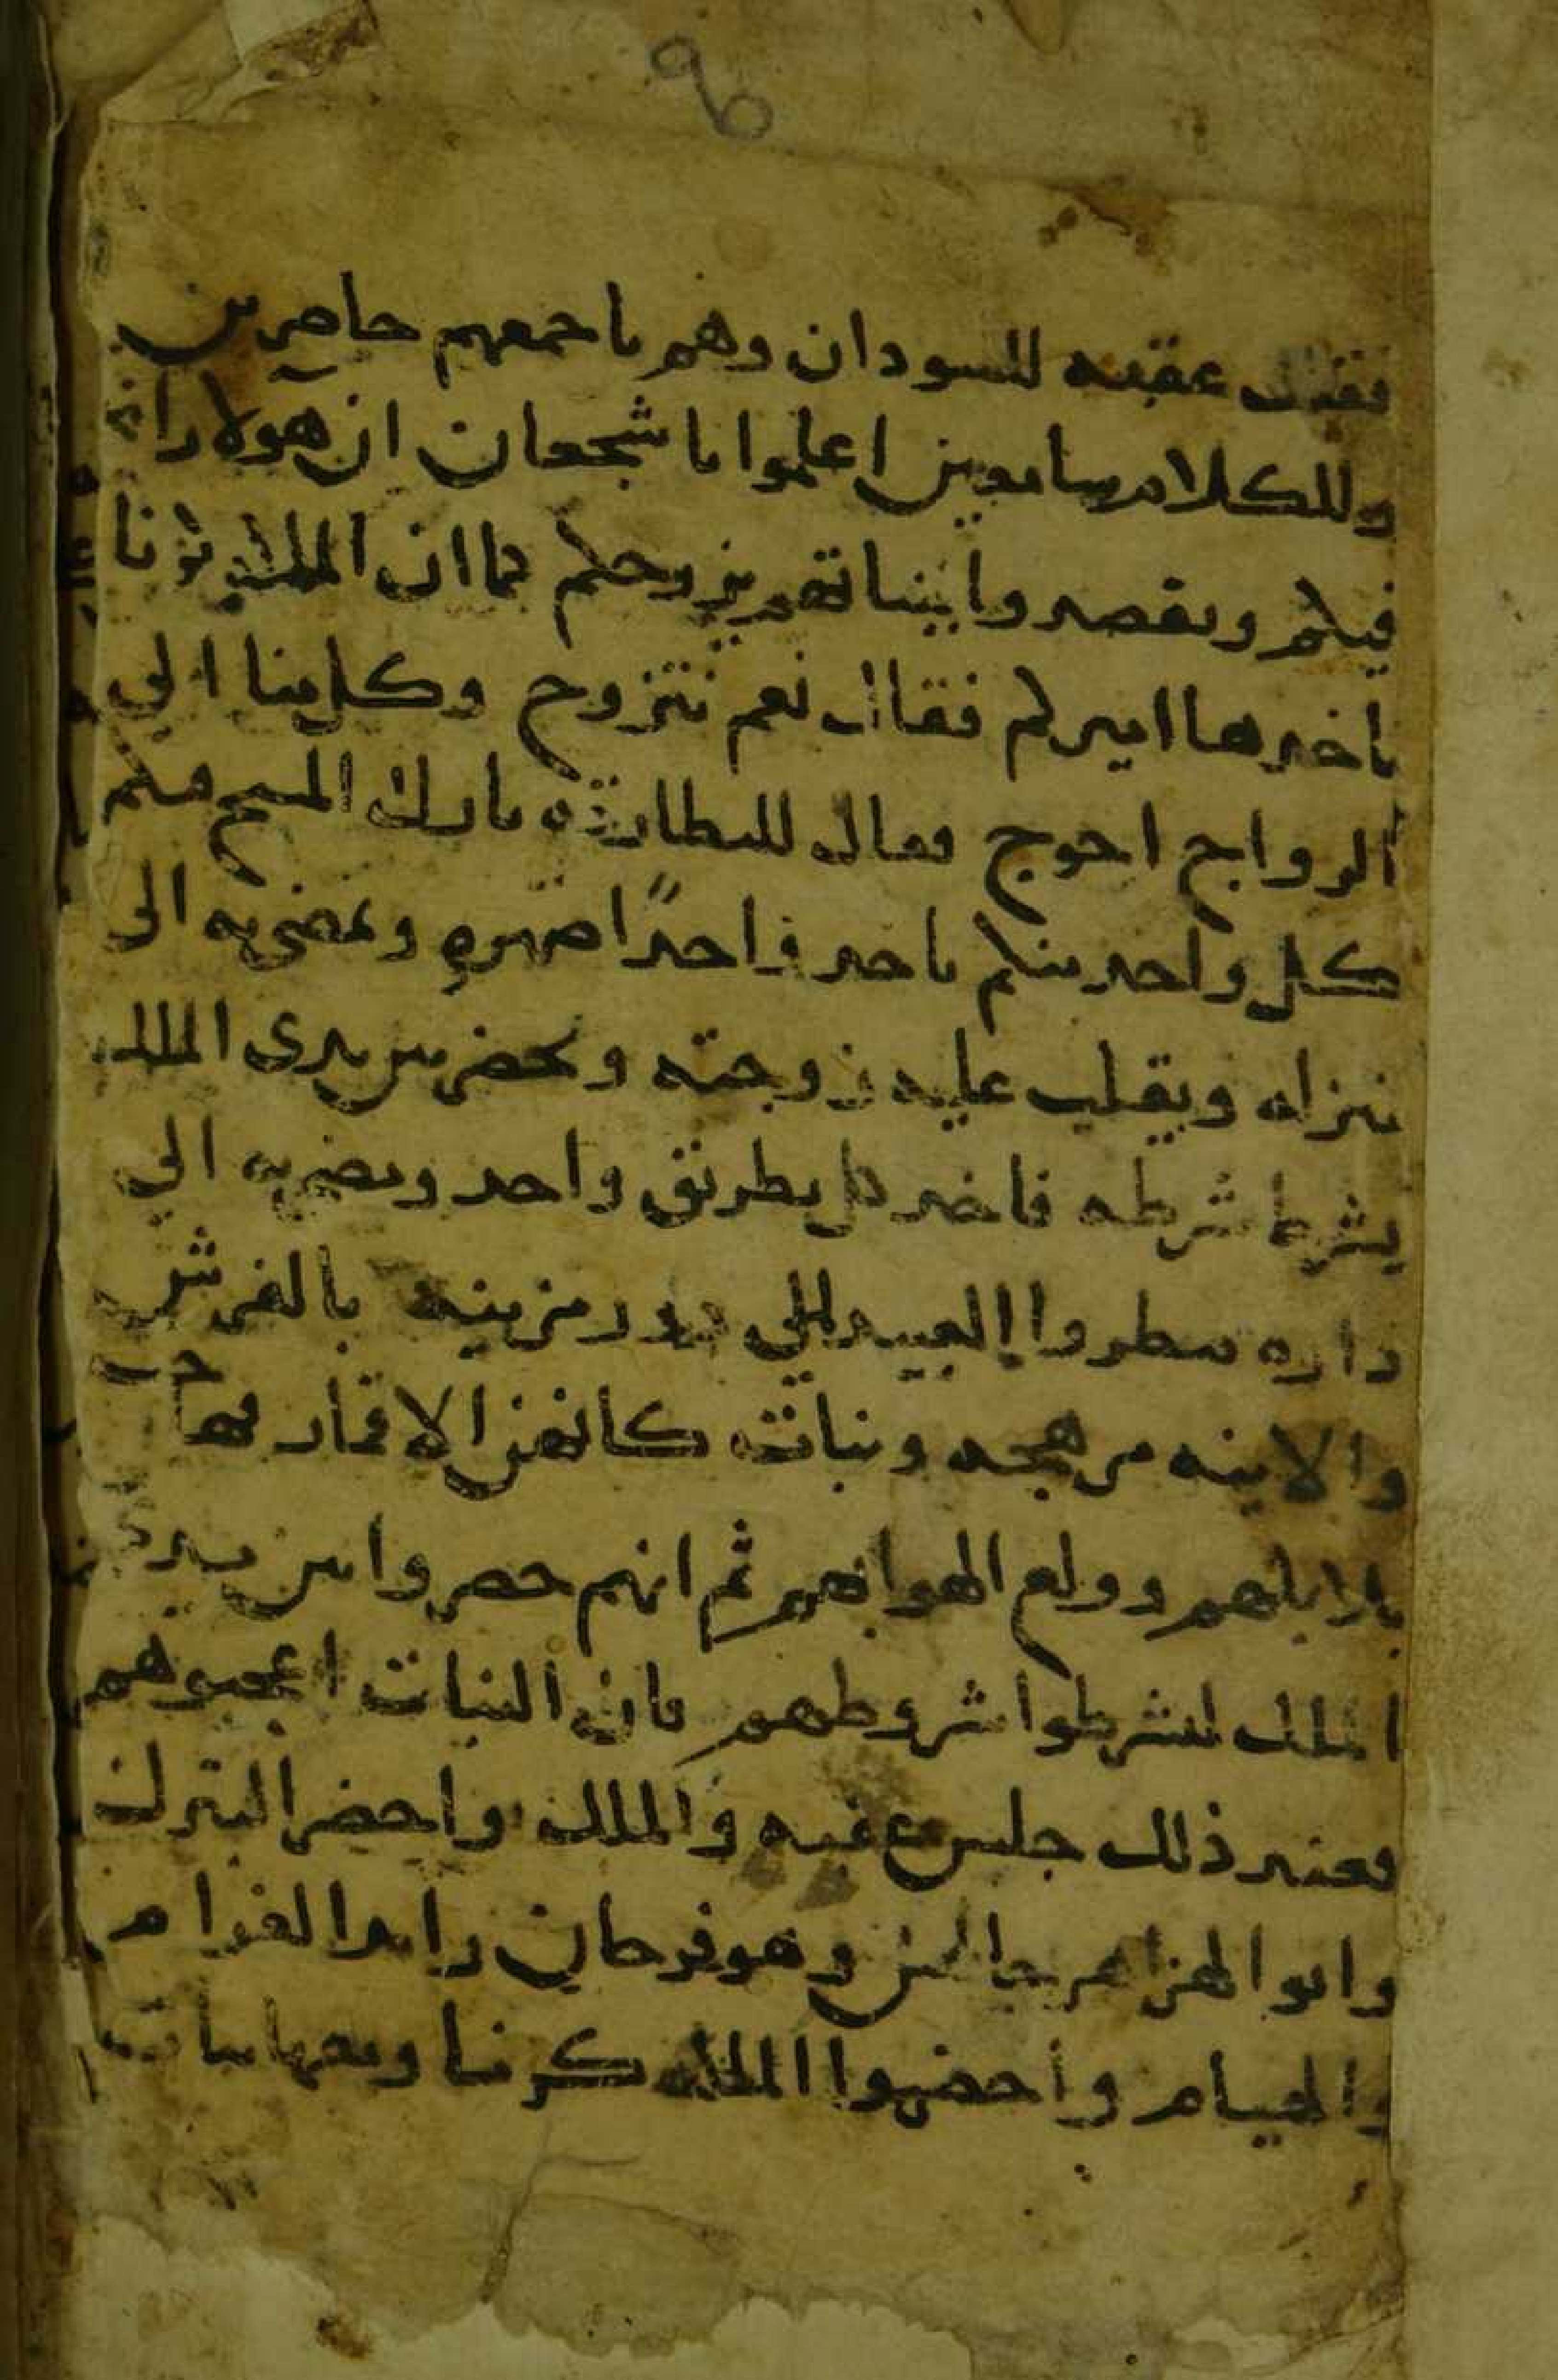 فقال عقبه للسودان وهم باجمعهم حاضرين
وللكلام سامعين اعلموا يا شجعان ان هولا راغبين
فيكم ويقصدوا ببناتهم يزوجكم كما ان الملكه نونا
ياخدها اميركم فقال نعم نتزوج وكل منا الى
الزواج احوج فقال للبطارقه بارك المسيح فيكم
كل واحد منكم ياخد واحدًا صهره ويمضى به الى
منزله ويقلب عليه زوجته ويحضر بين يدى الملك
يشرط شرطه فاخد كل بطريق واحد ومضى به الى
داره نظروا العبيد الى دور مزينه بالفرش
والانيه مبرهجه وبنات كانهن الاقمار فهاجت
بلابلهم وولع الهوا بهم ثم انهم حضروا بين يدى
الملك ليشرطوا شروطهم فان البنات اعجبوهم
فعند ذلك جلس عقبه والملك واحضر البترك
وابو الهزاهر جالس وهو فرحان زايد الغرام
والهيام واحضروا الملكه كرنا ومعها بنات